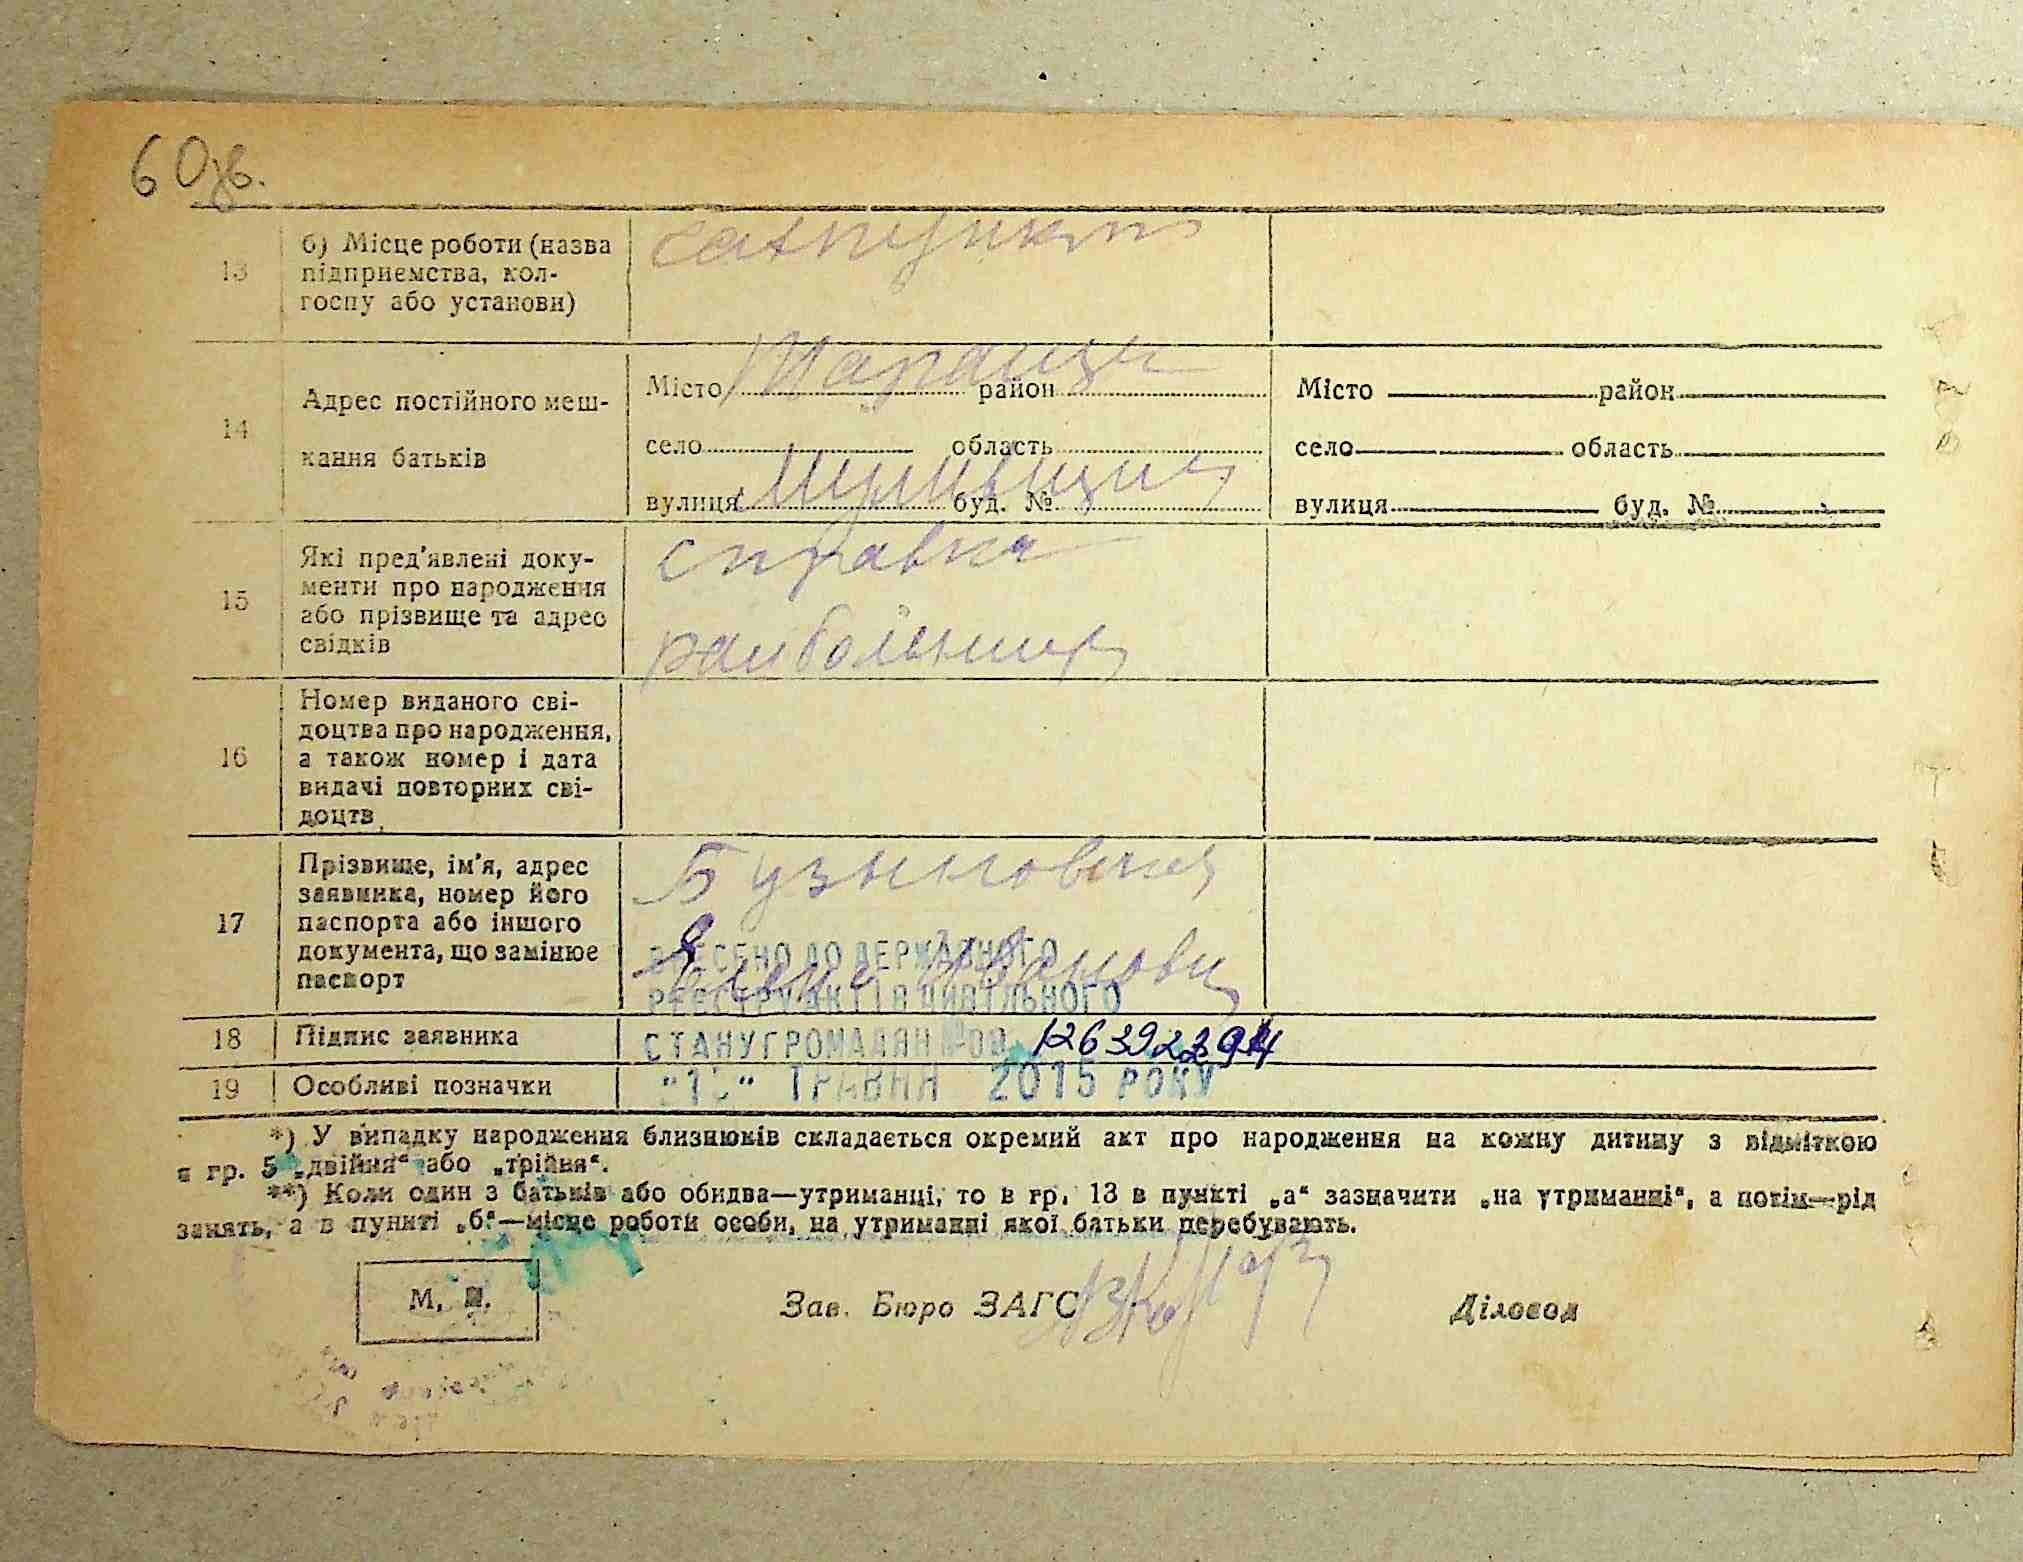 60зв.
13 б) Місце роботи (назва
підприємства, кол-
госпу або установи)
санпункт
14 Адрес постійного меш-
кання батьків
Місто Тараща район
село область
вулиця буд. №
Місто район
село область
вулиця буд. №
15 Які пред'явлені доку-
менти про народження
або прізвище та адрес
свідків
справка
райбольниця
16 Номер виданого сві-
доцтва про народження,
а також номер і дата
видачі повторних сві-
доцтв
17 Прізвище, ім'я, адрес
заявника, номер його
паспорта або іншого
документа, що замінює
паспорт
ВНЕСЕНО ДО ДЕРЖАВНОГО
РЕЄСТРУ АКТІВ ЦИВІЛЬНОГО
18 Підпис заявника
СТАНУ ГРОМАДЯН № 00
19 Особливі позначки
ТРАВНЯ 2015 РОКУ
*) У випадку народження близнюків складається окремий акт про народження на кожну дитину з відміткою
в гр. 5 „двійня“ або „трійня“.
**) Коли один з батьків або обидва—утриманці, то в гр. 13 в пункті „а“ зазначити „на утриманні“, а потім—рід
занять, а в пункті „б“—місце роботи особи, на утриманні якої батьки перебувають.
М. П.
Зав. Бюро ЗАГС
Діловод